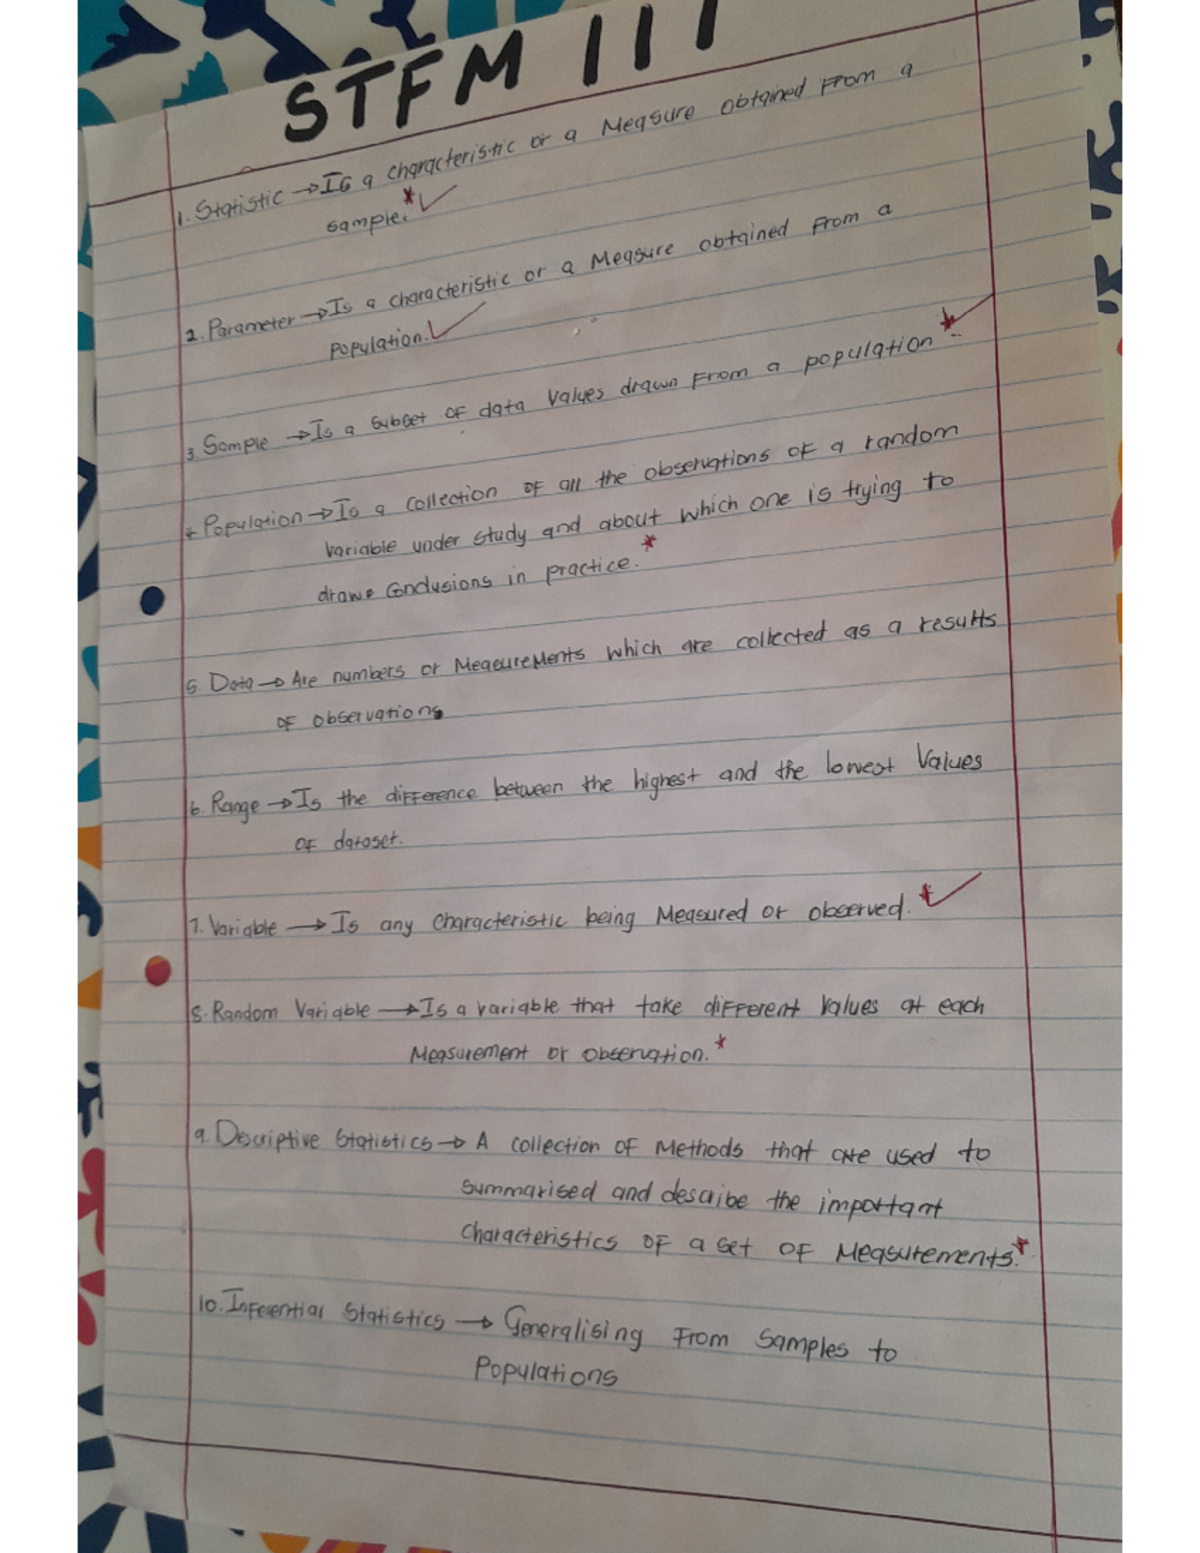 STFM 111
1. Statistic → Is a characteristic or a Measure obtained From a
sample.*✓
2. Parameter → Is a characteristic or a Measure obtained From a
Population.✓
3 Sample → Is a subset of data Values drawn From a population *✓
4 Population → Is a collection of all the observations of a random
Variable under study and about which one is trying to
drawe Conclusions in practice. *
5. Data → Are numbers or Measurements which are collected as a results
of observations
6. Range → Is the difference between the highest and the lowest Values
of dataset.
7. Variable → Is any characteristic being Measured or observed. *✓
8. Random Variable → Is a variable that take different Values at each
Measurement or observation. *
9. Descriptive Statistics → A collection of Methods that are used to
summarised and describe the important
characteristics of a set of Measurements.*
10. Inferential Statistics → Generalising From Samples to
Populations